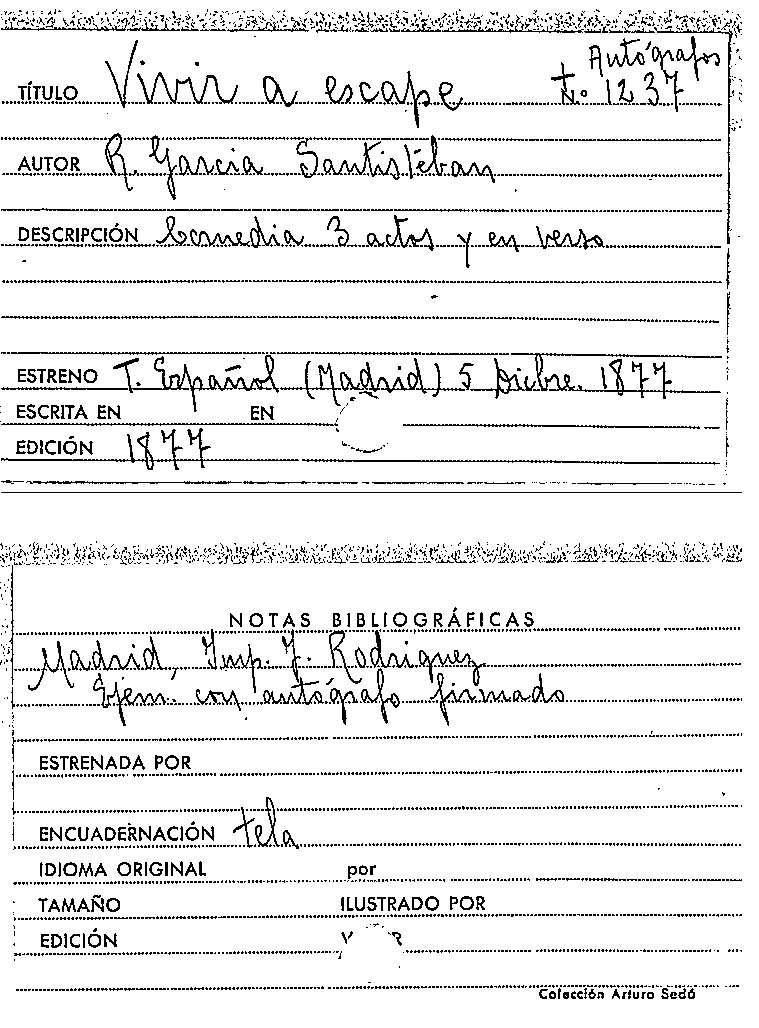 Autógrafos
TÍTULO Vivir a escape + N.º 1237
AUTOR R. Garcia Santistéban
DESCRIPCIÓN Comedia 3 actos y en verso
ESTRENO T. Español (Madrid) 5 Dicbre. 1877
ESCRITA EN EN
EDICIÓN 1877
NOTAS BIBLIOGRÁFICAS
Madrid, Imp. J. Rodriguez
Ejem. con autógrafo firmado
ESTRENADA POR
ENCUADERNACIÓN tela
IDIOMA ORIGINAL por
TAMAÑO ILUSTRADO POR
EDICIÓN
Colección Arturo Sedó